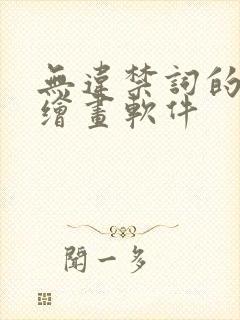 無違禁詞的
繪畫軟件
聞一多